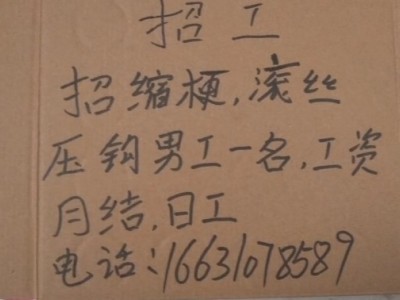 招工
招缩梗,滚丝
压钩男工一名,工资
月结,日工
电话:16631078589